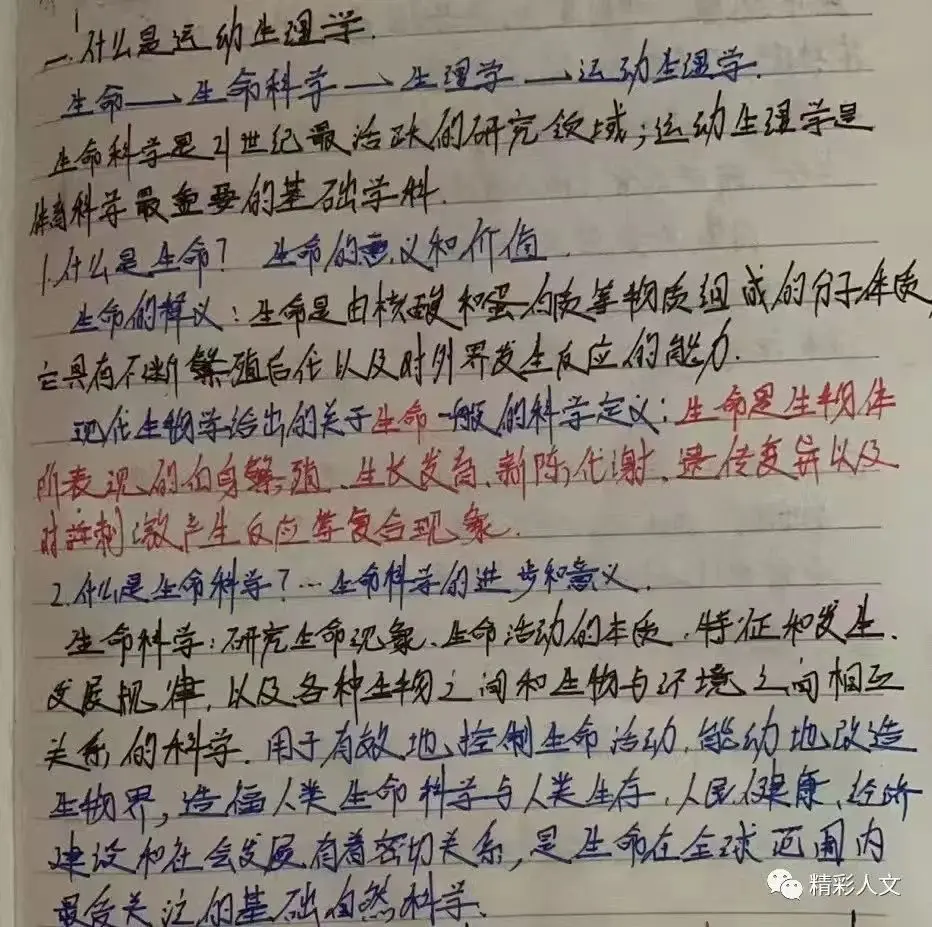 一.什么是运动生理学.
生命→生命科学→生理学→运动生理学.
生命科学是21世纪最活跃的研究领域;运动生理学是
体育科学最重要的基础学科.
1.什么是生命? 生命的意义和价值.
生命的释义:生命是由核酸和蛋白质等物质组成的分子体质,
它具有不断繁殖后代以及对外界发生反应的能力.
现代生物学给出的关于生命一般的科学定义:生命是生物体
所表现的自身繁殖、生长发育、新陈代谢、遗传变异以及
对刺激产生反应等复合现象.
2.什么是生命科学?…生命科学的进步和意义.
生命科学:研究生命现象、生命活动的本质、特征和发生、
发展规律,以及各种生物之间和生物与环境之间相互
关系的科学.用于有效地控制生命活动,能动地改造
生物界,造福人类生命科学与人类生存、人民健康、经济
建设和社会发展有着密切关系,是生命在全球范围内
最受关注的基础自然科学.
精彩人文